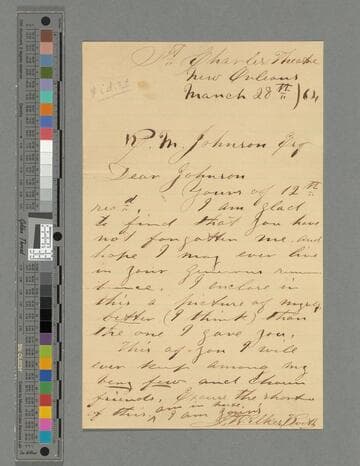 St. Charles Theatre
New Orleans
March 28th / 64
R. M. Johnson Esq
Dear Johnson
Yours of 12th
rec'd, I am glad
to find that you have
not forgotten me and
hope I may ever live
in your generous remem
brance. I enclose in
this a picture of myself
better (I think) than
the one I gave you.
This of you I will
ever keep among my
few and chosen
friends. Excuse the shortness
of this, am in haste. I am yours
J. Wilkes Booth